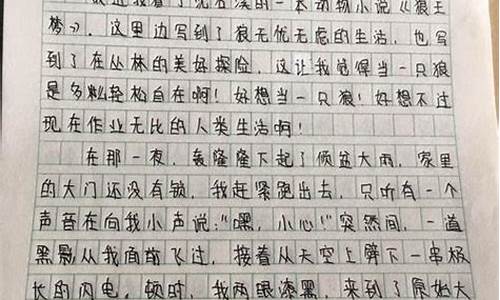 最近我看了沈石溪的一本动物小说《狼王
梦》，这里边写到了狼无忧无虑的生活，也写
到了在丛林的美好探险，这让我觉得当一只狼
是多么轻松自在啊！好想当一只狼！好想不过
现在作业无比的人类生活啊！
在那一夜，轰隆隆下起了倾盆大雨，家里
的大门还没有锁，我赶紧跑出去，只听有一个
声音在向我小声说：“嘿，小心！”突然间，一道
黑影从我面前飞过，接着从天空上劈下一串极
长的闪电，顿时，我两眼漆黑，来到了原始大